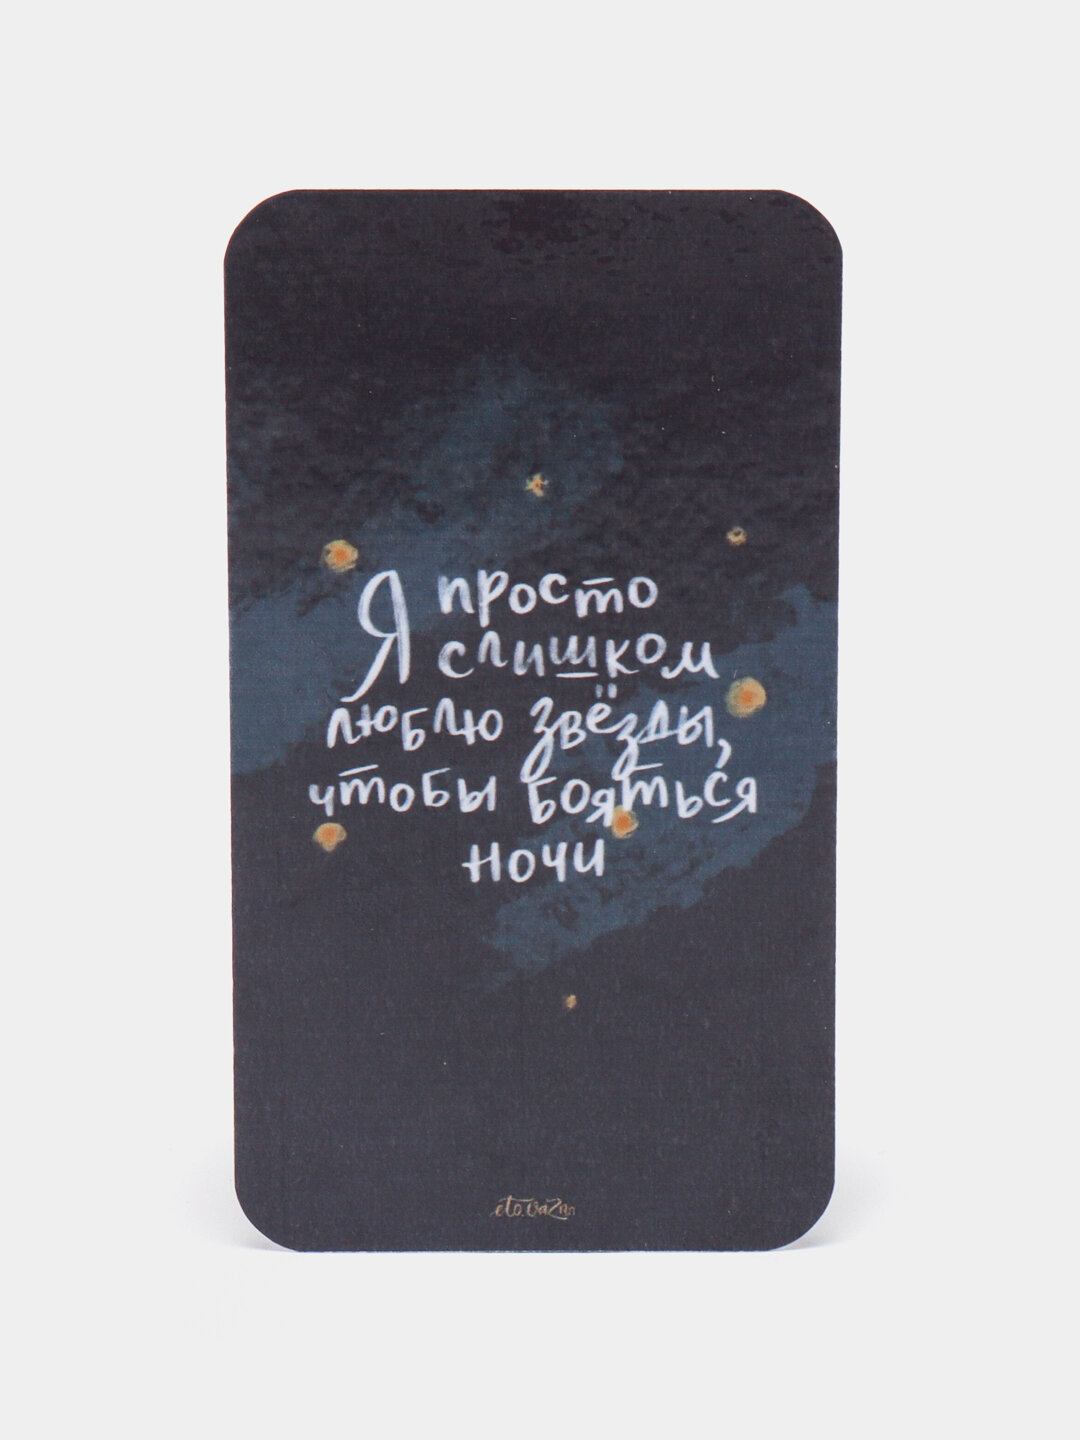 Я просто
слишком
люблю звёзды,
чтобы бояться
ночи
eto.vazno